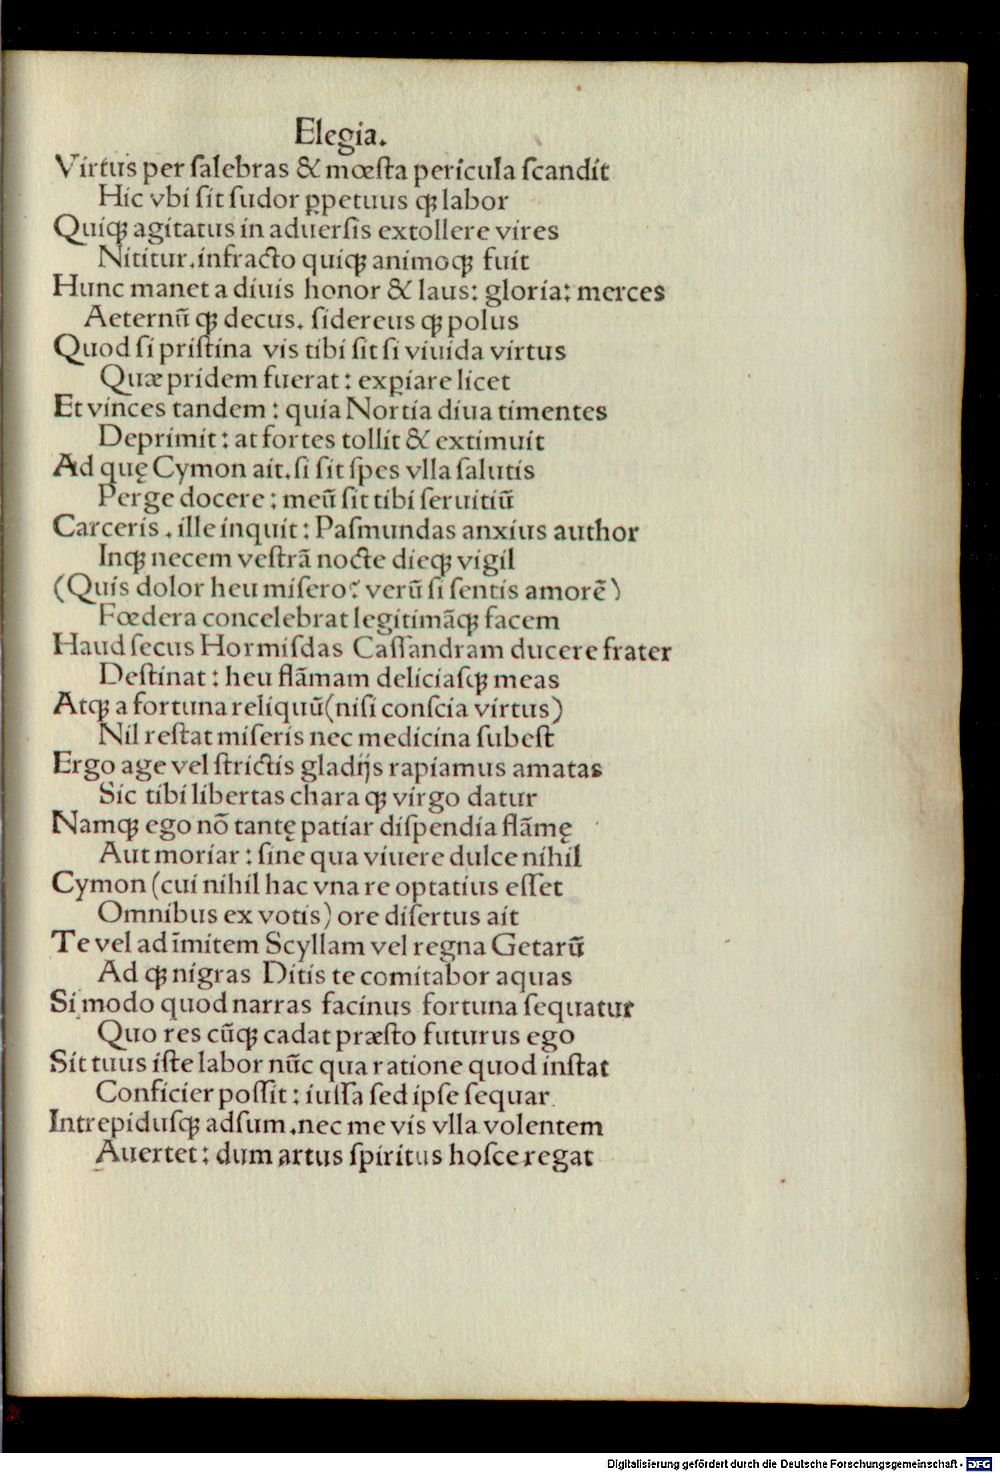 Elegia.
Virtus per ſalebras & mœſta pericula ſcandit
Hic vbi ſit ſudor ꝑpetuus qꝫ labor
Quiqꝫ agitatus in aduerſis extollere vires
Nititur.infracto quiqꝫ animoqꝫ fuit
Hunc manet a diuis honor & laus: gloria: merces
Aeternū qꝫ decus. ſidereus qꝫ polus
Quod ſi priſtina vis tibi ſit ſi viuida virtus
Quæ pridem fuerat: exꝑiare licet
Et vinces tandem: quia Nortia diua timentes
Deprimit: at fortes tollit & extimuit
Ad quę Cymon ait.ſi ſit ſpes vlla ſalutis
Perge docere: meū ſit tibi ſeruitiū
Carceris. ille inquit: Paſmundas anxius author
Inqꝫ necem veſtrā nocte dieqꝫ vigil
(Quis dolor heu miſero? verū ſi ſentis amorē)
Fœdera concelebrat legitimāqꝫ facem
Haud ſecus Hormiſdas Caſſandram ducere frater
Deſtinat: heu flāmam deliciaſqꝫ meas
Atqꝫ a fortuna reliquū(niſi conſcia virtus)
Nil reſtat miſeris nec medicina ſubeſt
Ergo age vel ſtrictis gladijs rapiamus amatas
Sic tibi libertas chara qꝫ virgo datur
Namqꝫ ego nō tantę patiar diſpendia flāmę
Aut moriar: ſine qua viuere dulce nihil
Cymon (cui nihil hac vna re optatius eſſet
Omnibus ex votis) ore diſertus ait
Te vel ad īmitem Scyllam vel regna Getarū
Ad qꝫ nigras Ditis te comitabor aquas
Si modo quod narras facinus fortuna ſequatur
Quo res cūqꝫ cadat præſto futurus ego
Sit tuus iſte labor nūc qua ratione quod inſtat
Conficier poſſit: iuſſa ſed ipſe ſequar
Intrepiduſqꝫ adſum.nec me vis vlla volentem
Auertet: dum artus ſpiritus hoſce regat
Digitalisierung gefördert durch die Deutsche Forschungsgemeinschaft - DFG